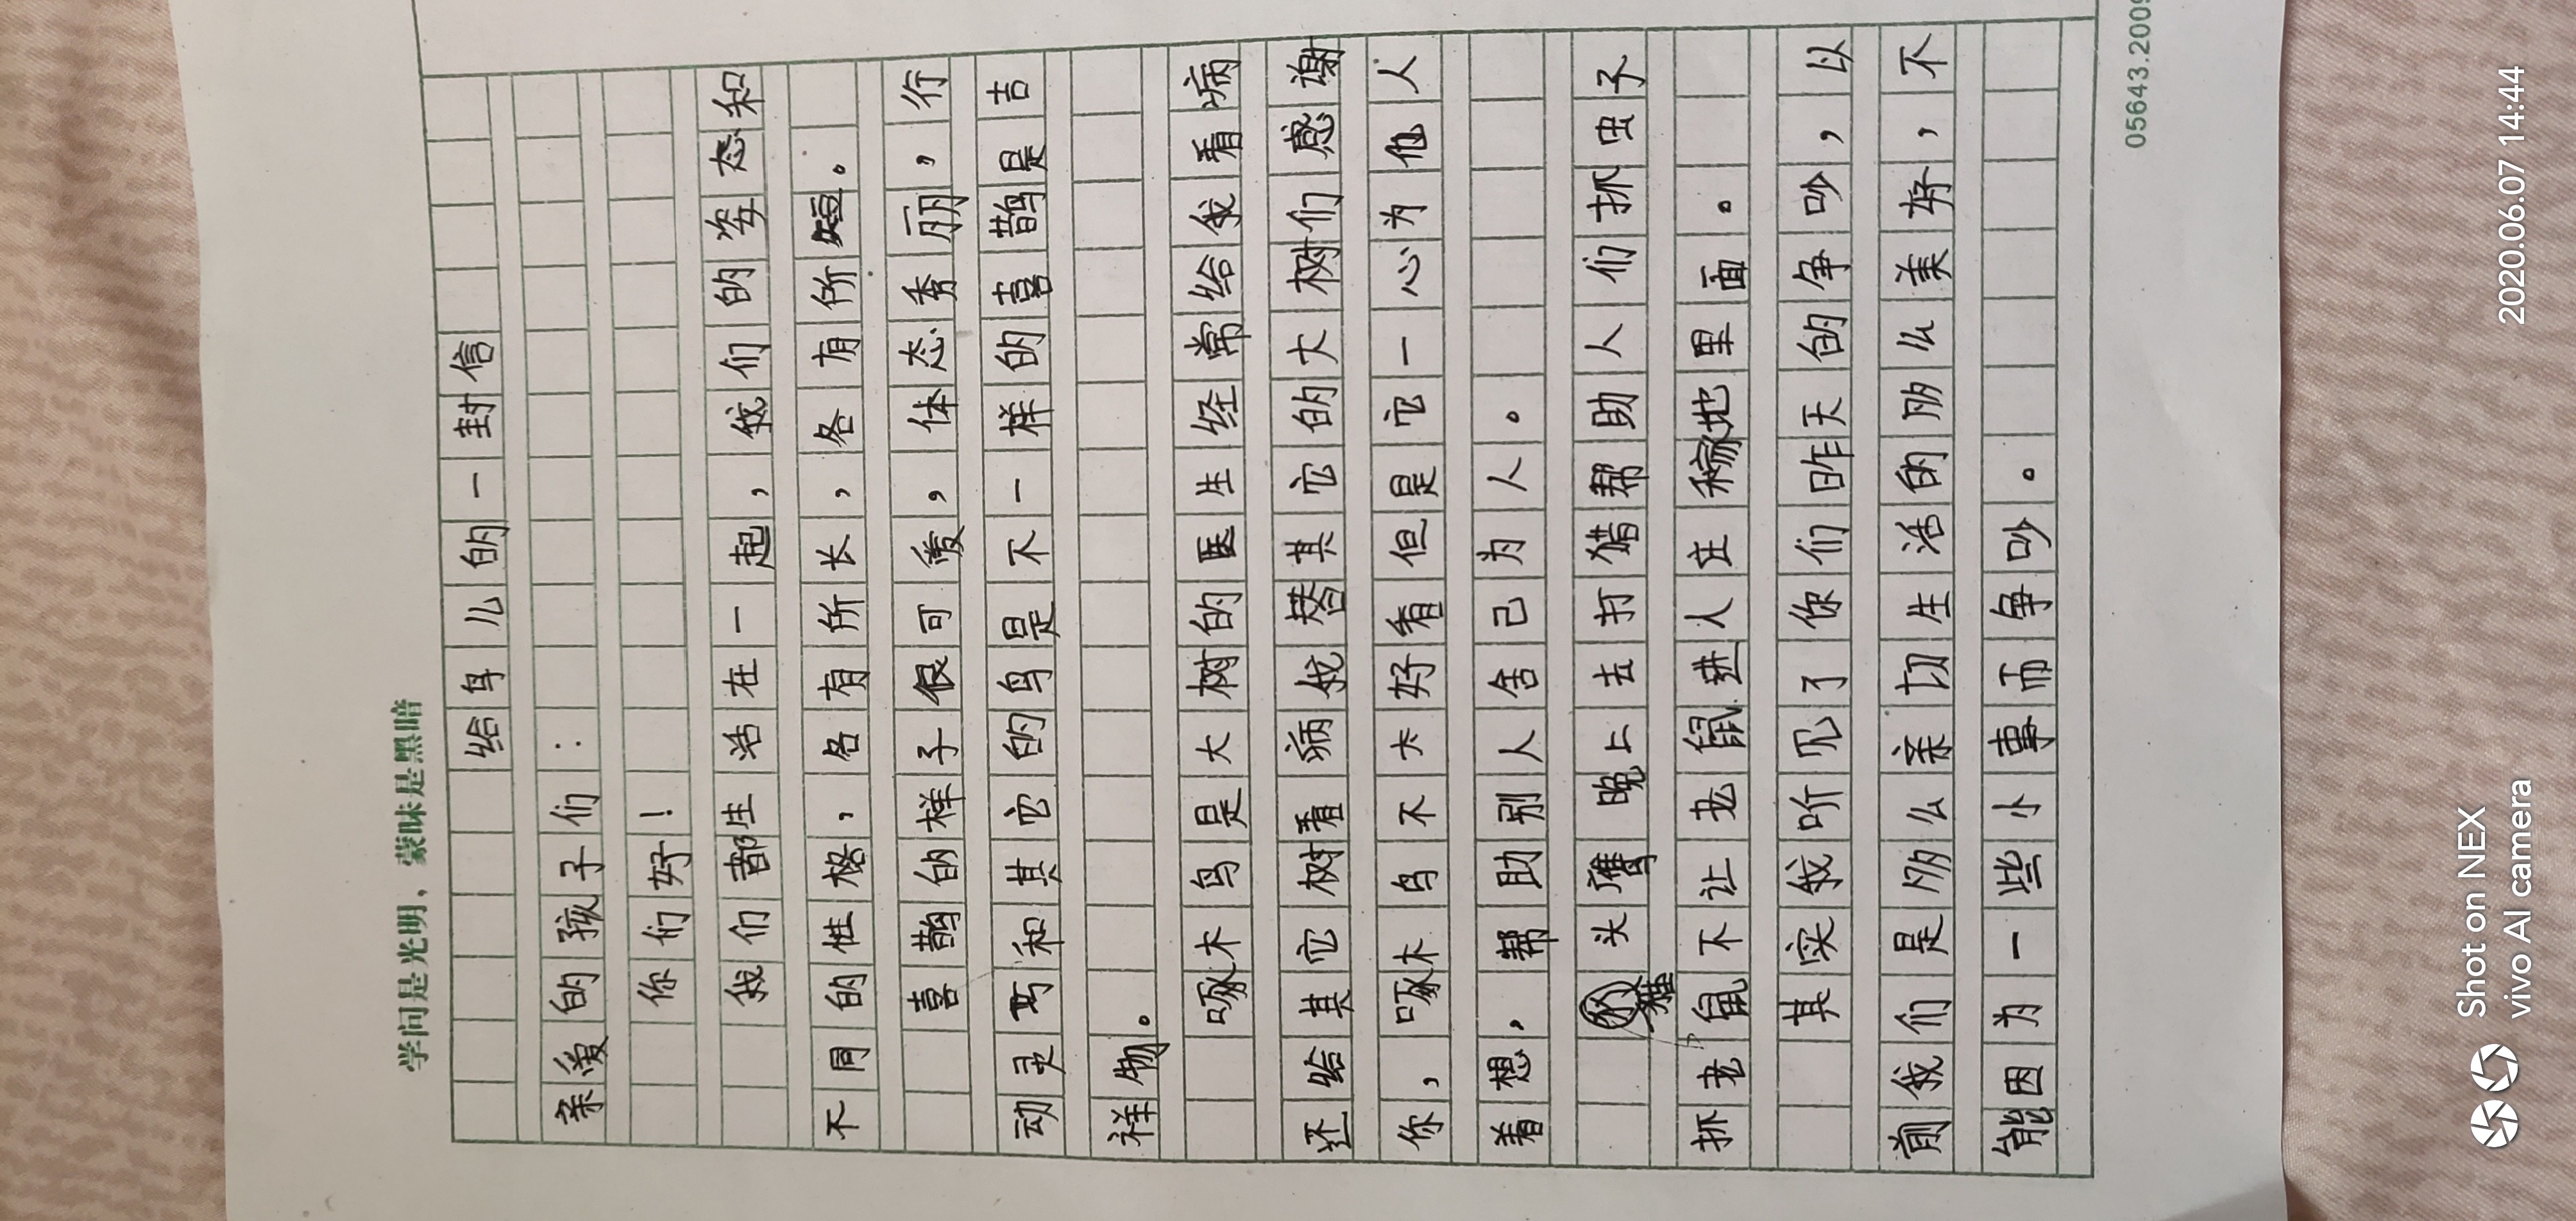 学问是光明，蒙昧是黑暗
给鸟儿的一封信
亲爱的孩子们：
你们好！
我们都生活在一起，我们的姿态和
不同的性格，各有所长，各有所短。
喜鹊的样子很可爱，体态秀丽，行
动灵巧和其它的鸟是不一样的喜鹊是吉
祥物。
啄木鸟是大树的医生经常给我看病
还给其它树看病我替其它的大树们感谢
你，啄木鸟不大好看但是它一心为他人
着想，帮助别人舍己为人。
猫头鹰晚上去打猎帮助人们抓虫子
抓老鼠不让老鼠进人庄稼地里面。
其实我听见了你们昨天的争吵，以
前我们是多么亲切生活的多么美好，不
能因为一些小事而争吵。
05643.2009
Shot on NEX
vivo AI camera
2020.06.07 14:44